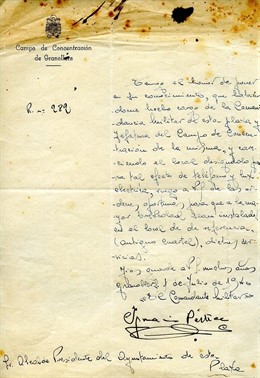 Campo de Concentración
de Granollers
R. nº 282
Tengo el honor de poner
a su conocimiento, que habién-
dome hecho cargo de la Coman-
dancia Militar de esta plaza y
Jefatura del Campo de Concen-
tración de la misma, y care-
ciendo el local designado pa-
ra tal efecto de teléfono y luz
eléctrica, ruego a V. de las
órdenes oportunas para que a la ma-
yor brevedad sean instalados
en el local de referencia,
(antiguo cuartel), dichos ser-
vicios.
Dios guarde a V. muchos años
Granollers 1 de Julio de 19
El Comandante Militar
Sr. Alcalde Presidente del Ayuntamiento de esta
Plaza